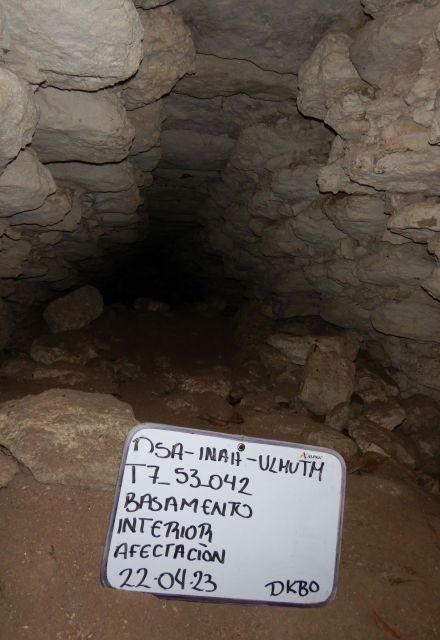 DSA-INAH-ULMUTM
T7_53_042
BASAMENTO
INTERIOR
AFECTACIÓN
22-04-23 DKBO